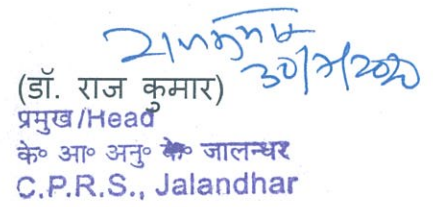 राजकुमार
(डॉ. राज कुमार)
प्रमुख/Head
के० आ० अनु० के० जालन्धर
C.P.R.S., Jalandhar